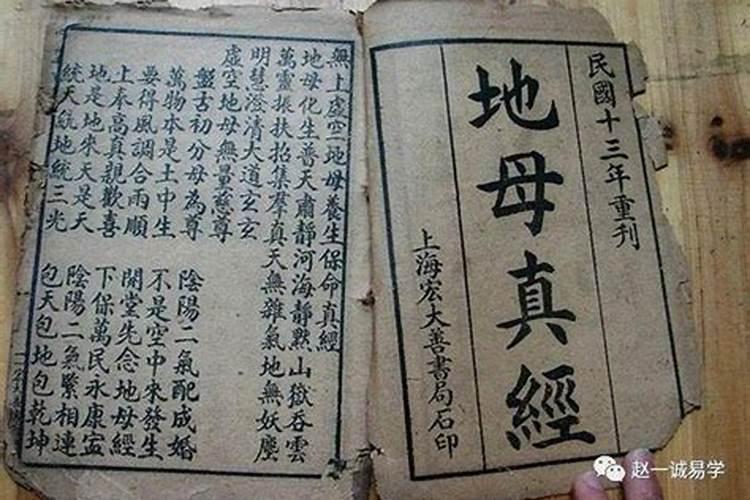 民國十三年重刊
地母真經
上海宏大善書局石印
無上虛空地母養生保命真經
地母化生普天肅靜河海靜默山嶽吞雲
萬靈振扶招集羣真天無雜氣地無妖塵
明慧澄清大道玄玄
虛空地母無量慈尊
盤古初分母為尊 陰陽二氣配成婚
萬物本是土中生 不是空中來發生
要得風調合雨順 開堂先念地母經
上奉高真親歡喜 下保萬民永康寧
地是地來天是天 陰陽二氣緊相連
統天統地統三光 包天包地包乾坤
赵一诚易学